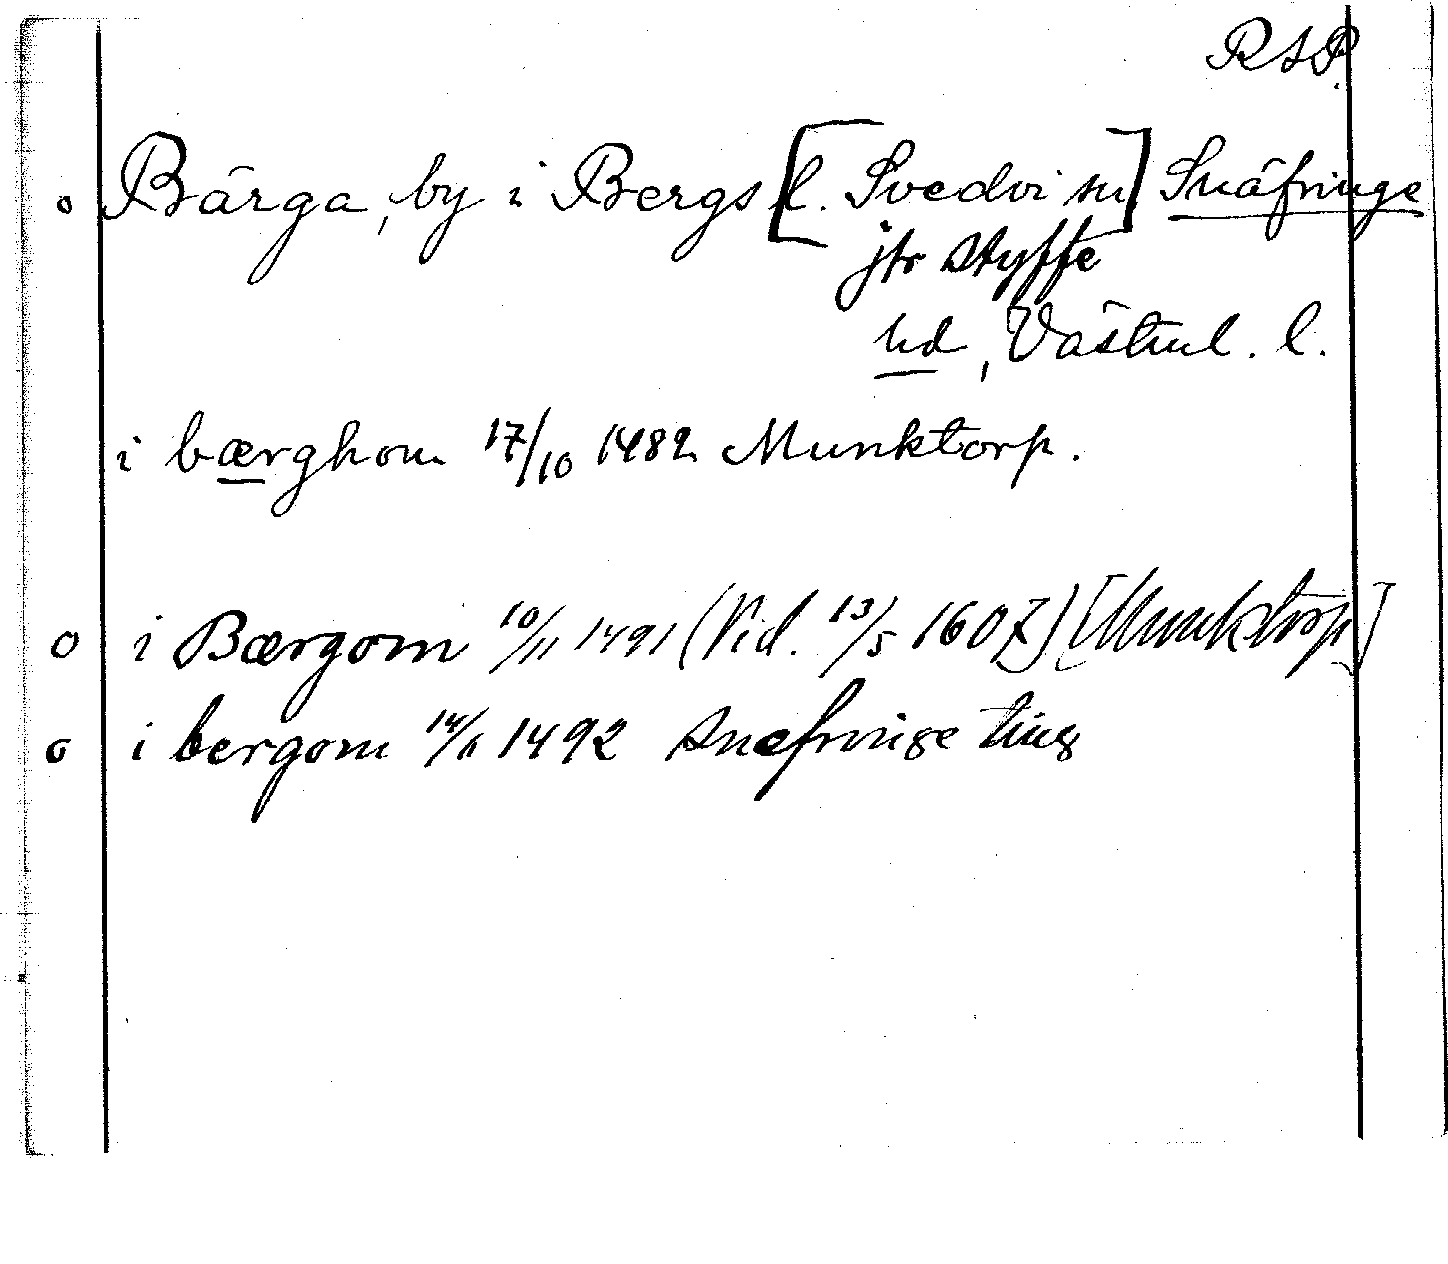 RAP.
o Bärga, by i Bergs [l. Svedvi sn] Snäfringe
jfr Styffe
hd, Västml. l.
i bærghom 17/10 1482 Munktorp.
o i Bærgom 10/11 1491 (Vid. 13/5 1607) [Munktorp]
o i bergom 14/11 1492 Snefringe ting